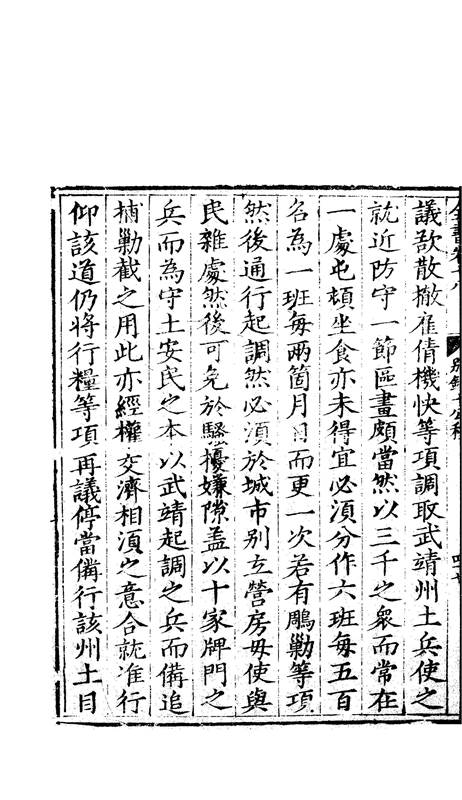 全書卷十八
別錄十公移
議欲散撤雇倩機快等項調取武靖州土兵使之
就近防守一節區畫頗當然以三千之衆而常在
一處屯頓坐食亦未得宜必湏分作六班每五百
名為一班每兩箇月日而更一次若有鵰勦等項
然後通行起調然必湏於城市别立營房毋使與
民雜處然後可免於騷擾嫌隙盖以十家牌門之
兵而為守土安民之本以武靖起調之兵而備追
捕勦截之用此亦經權交濟相湏之意合就准行
仰該道仍將行糧等項再議停當備行該州土目